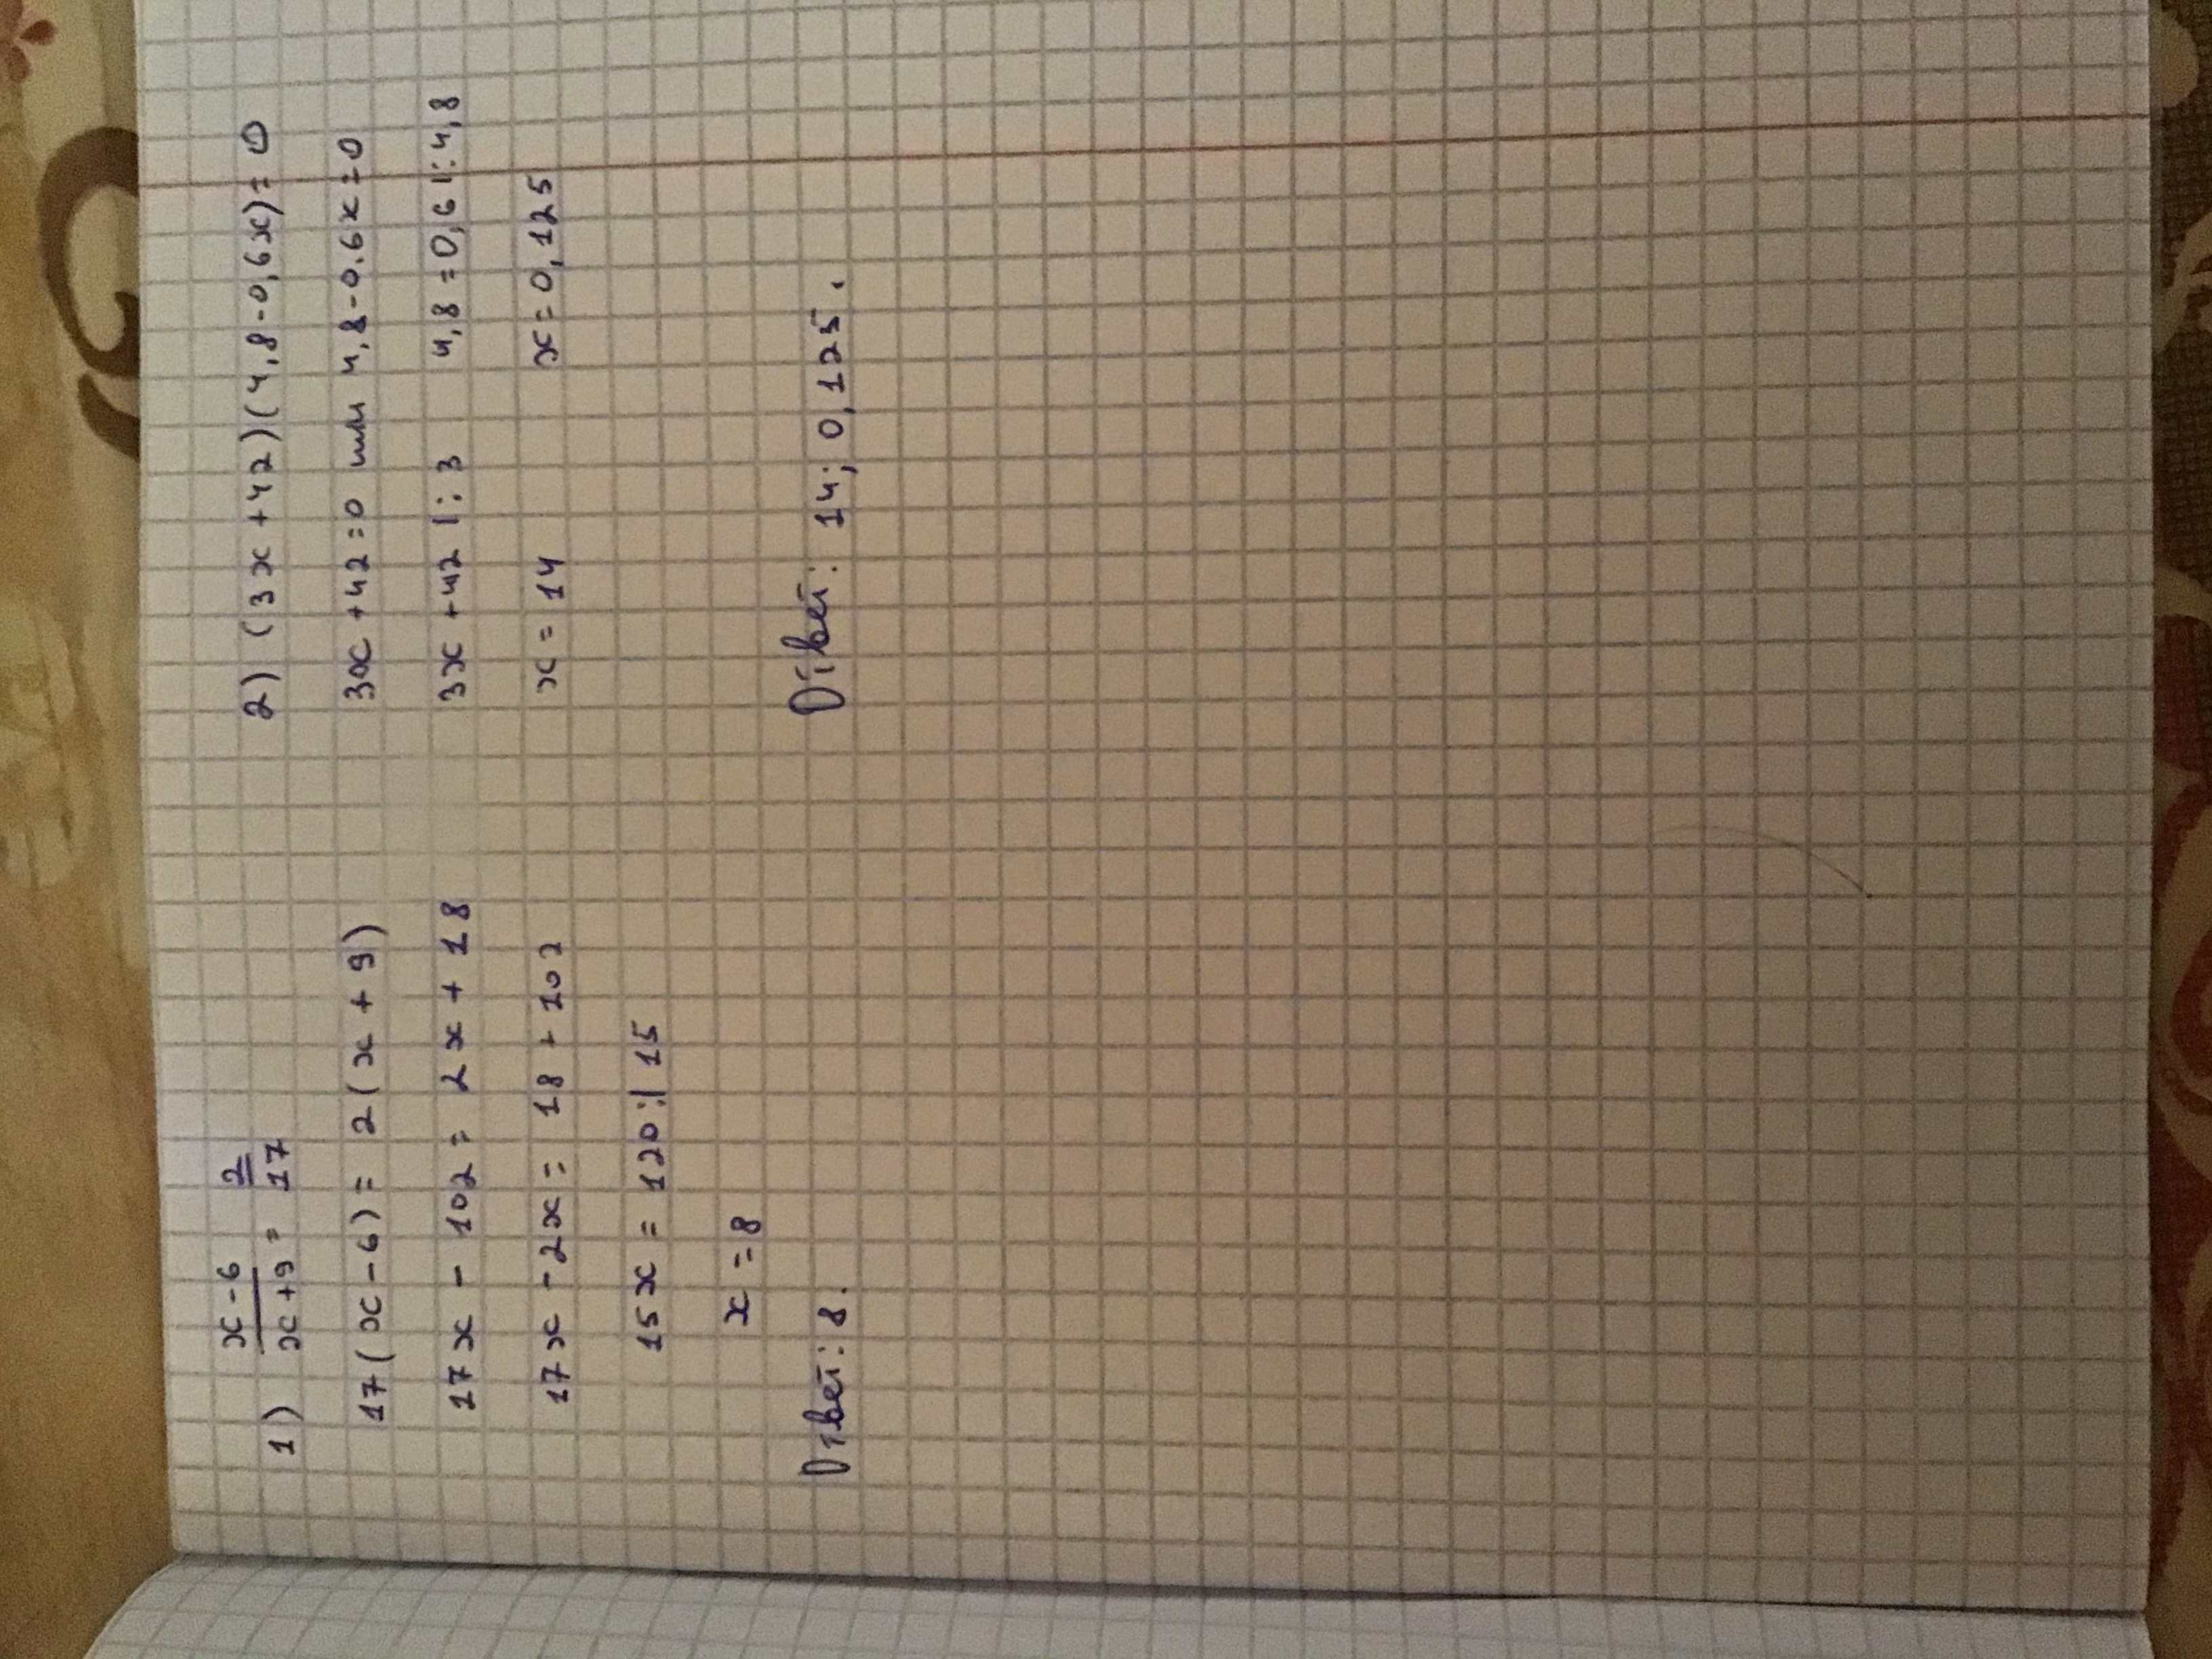 1) x-6/x+9 = 2/17
17(x-6) = 2(x+9)
17x - 102 = 2x + 18
17x - 2x = 18 + 102
15x = 120:| 15
x = 8
Ответ: 8.
2) (3x+42)(4,8-0,6x)=0
3x+42=0 или 4,8-0.6x=0
3x+42 |:3 4,8=0,6 |:4,8
x=14 x=0,125
Ответ: 14; 0,125.